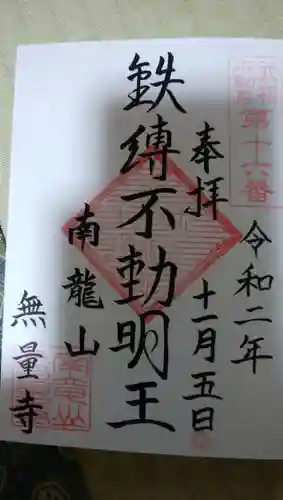 第十六番
令和二年
奉拝
十一月五日
鉄縛不動明王
南龍山
無量寺